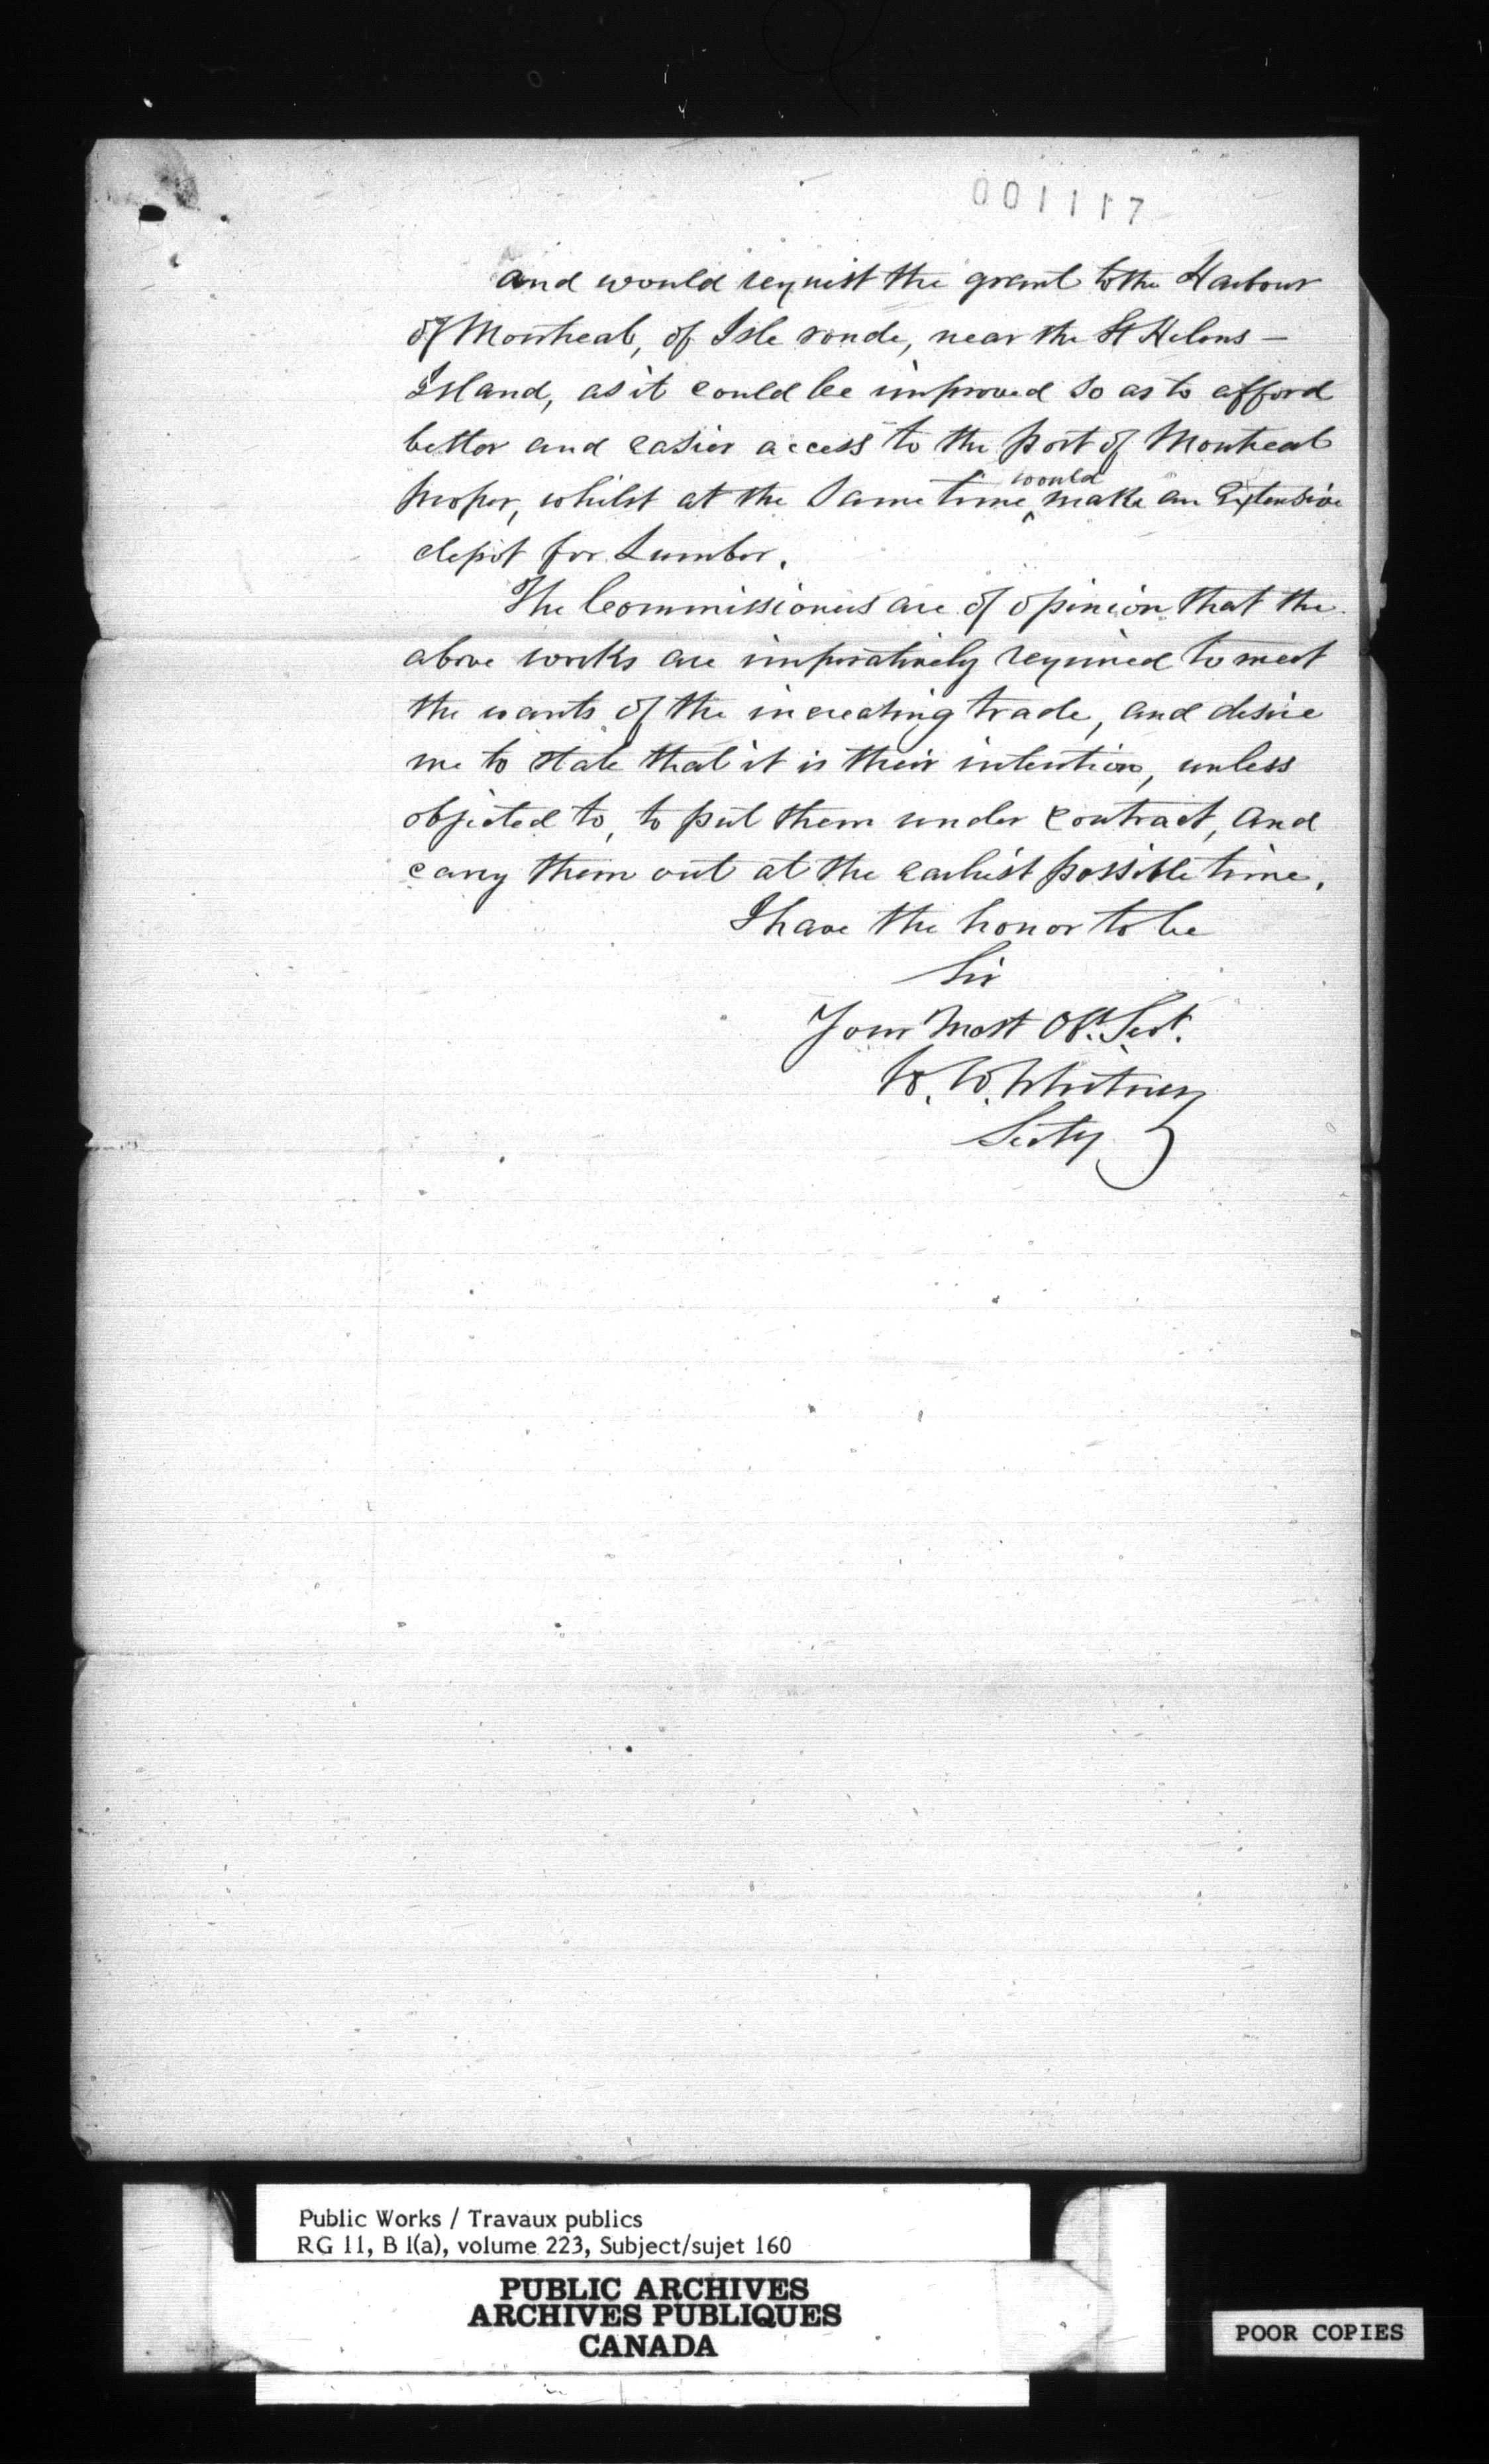 001117
and would request the grant to the Harbour
of Montreal, of Isle ronde, near the St Helens -
Island, as it could be improved so as to afford
better and easier access to the port of Montreal
proper, whilst at the same time would make an Extensive
depot for Lumber.
The Commissioners are of opinion that the
above works are imperatively required to meet
the wants of the increasing trade, and desire
me to state that it is their intention, unless
objected to, to put them under contract, and
carry them out at the earliest possible time.
I have the honor to be
Sir
Your Most Obt. Servt.
W. W. Whitney
Secty
Public Works / Travaux publics
RG 11, B 1(a), volume 223, Subject/sujet 160
PUBLIC ARCHIVES
ARCHIVES PUBLIQUES
CANADA
POOR COPIES